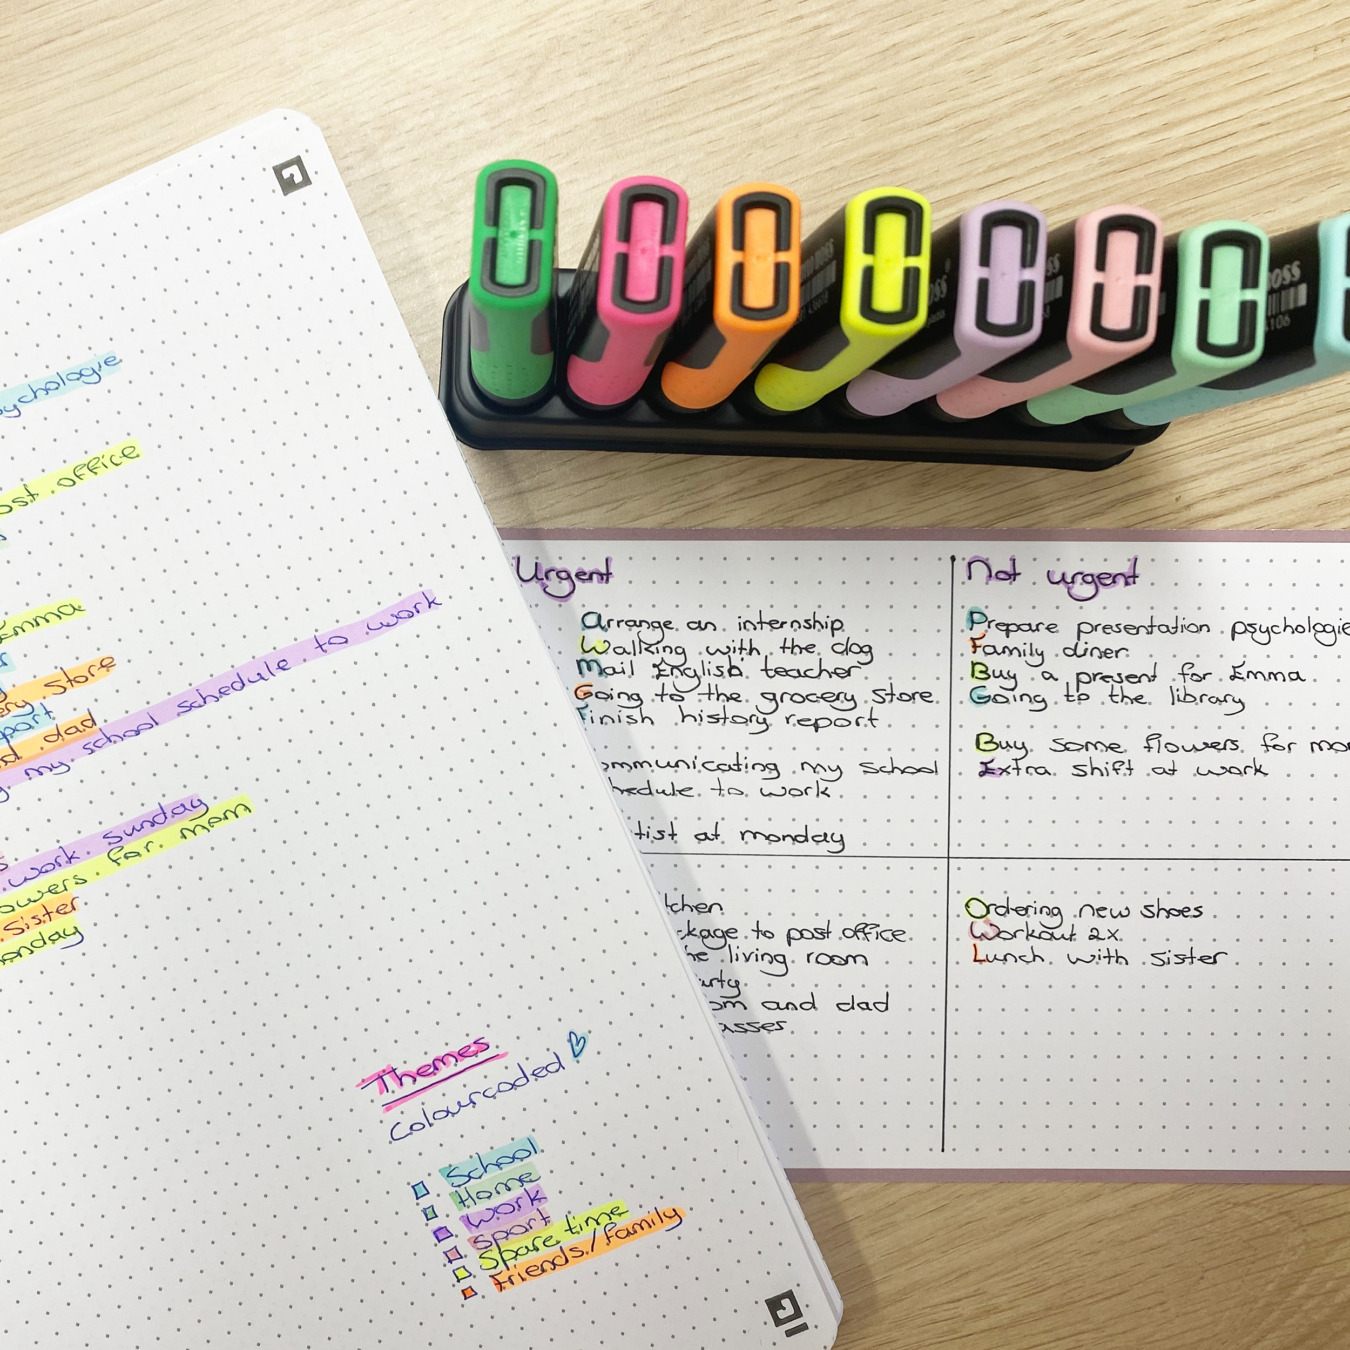 psychologie
post office
Emma
grocery store
report
and dad
my school schedule to work
work sunday
flowers for mom
sister
monday
Themes
Colourcoded
School
Home
Work
Sport
Spare time
Friends/family
BOSS
BOSS
BOSS
Urgent
Arrange an internship
Walking with the dog
Mail English teacher
Going to the grocery store
Finish history report
ommunicating my school
hedule to work
tist at monday
Not urgent
Prepare presentation psychologie
Family diner
Buy a present for Emma
Going to the library
Buy some flowers for mo
Extra shift at work
tchen
ckage to post office
he living room
arty
om and dad
asses
Ordering new shoes
Workout 2x
Lunch with sister